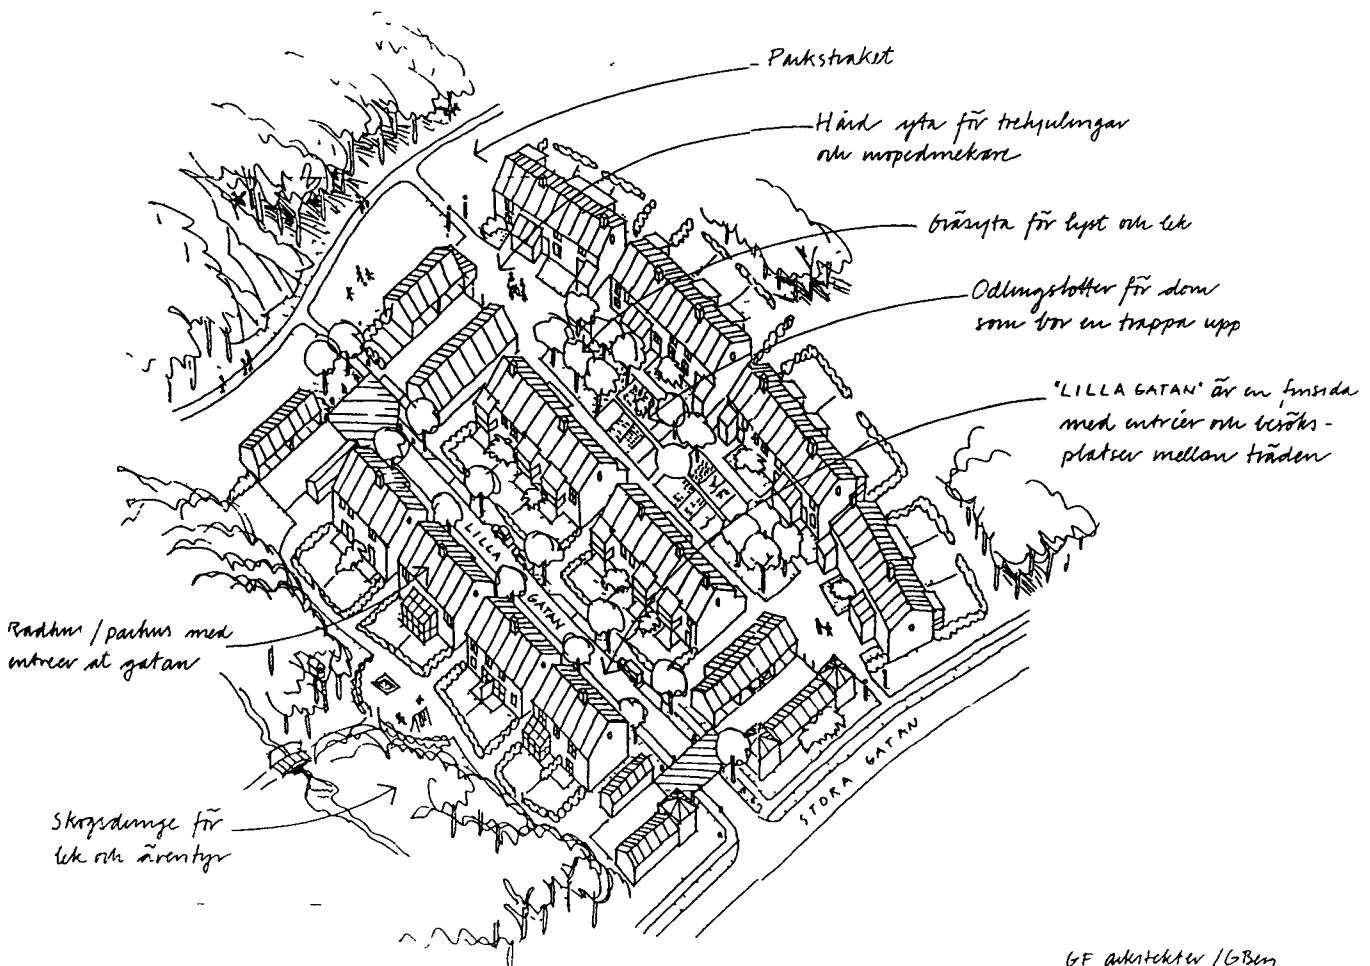 Parkstråket
Hård yta för trehjulingar
och mopedmekare
Gräsyta för lyst och lek
Odlingslotter för dom
som bor en trappa upp
"LILLA GATAN" är en finsida
med entréer och besöks-
platser mellan träden
LILLA
GATAN
Radhus / parhus med
entreer åt gatan
STORA GATAN
Skogsdunge för
lek och äventyr
GF arkitekter /GBen